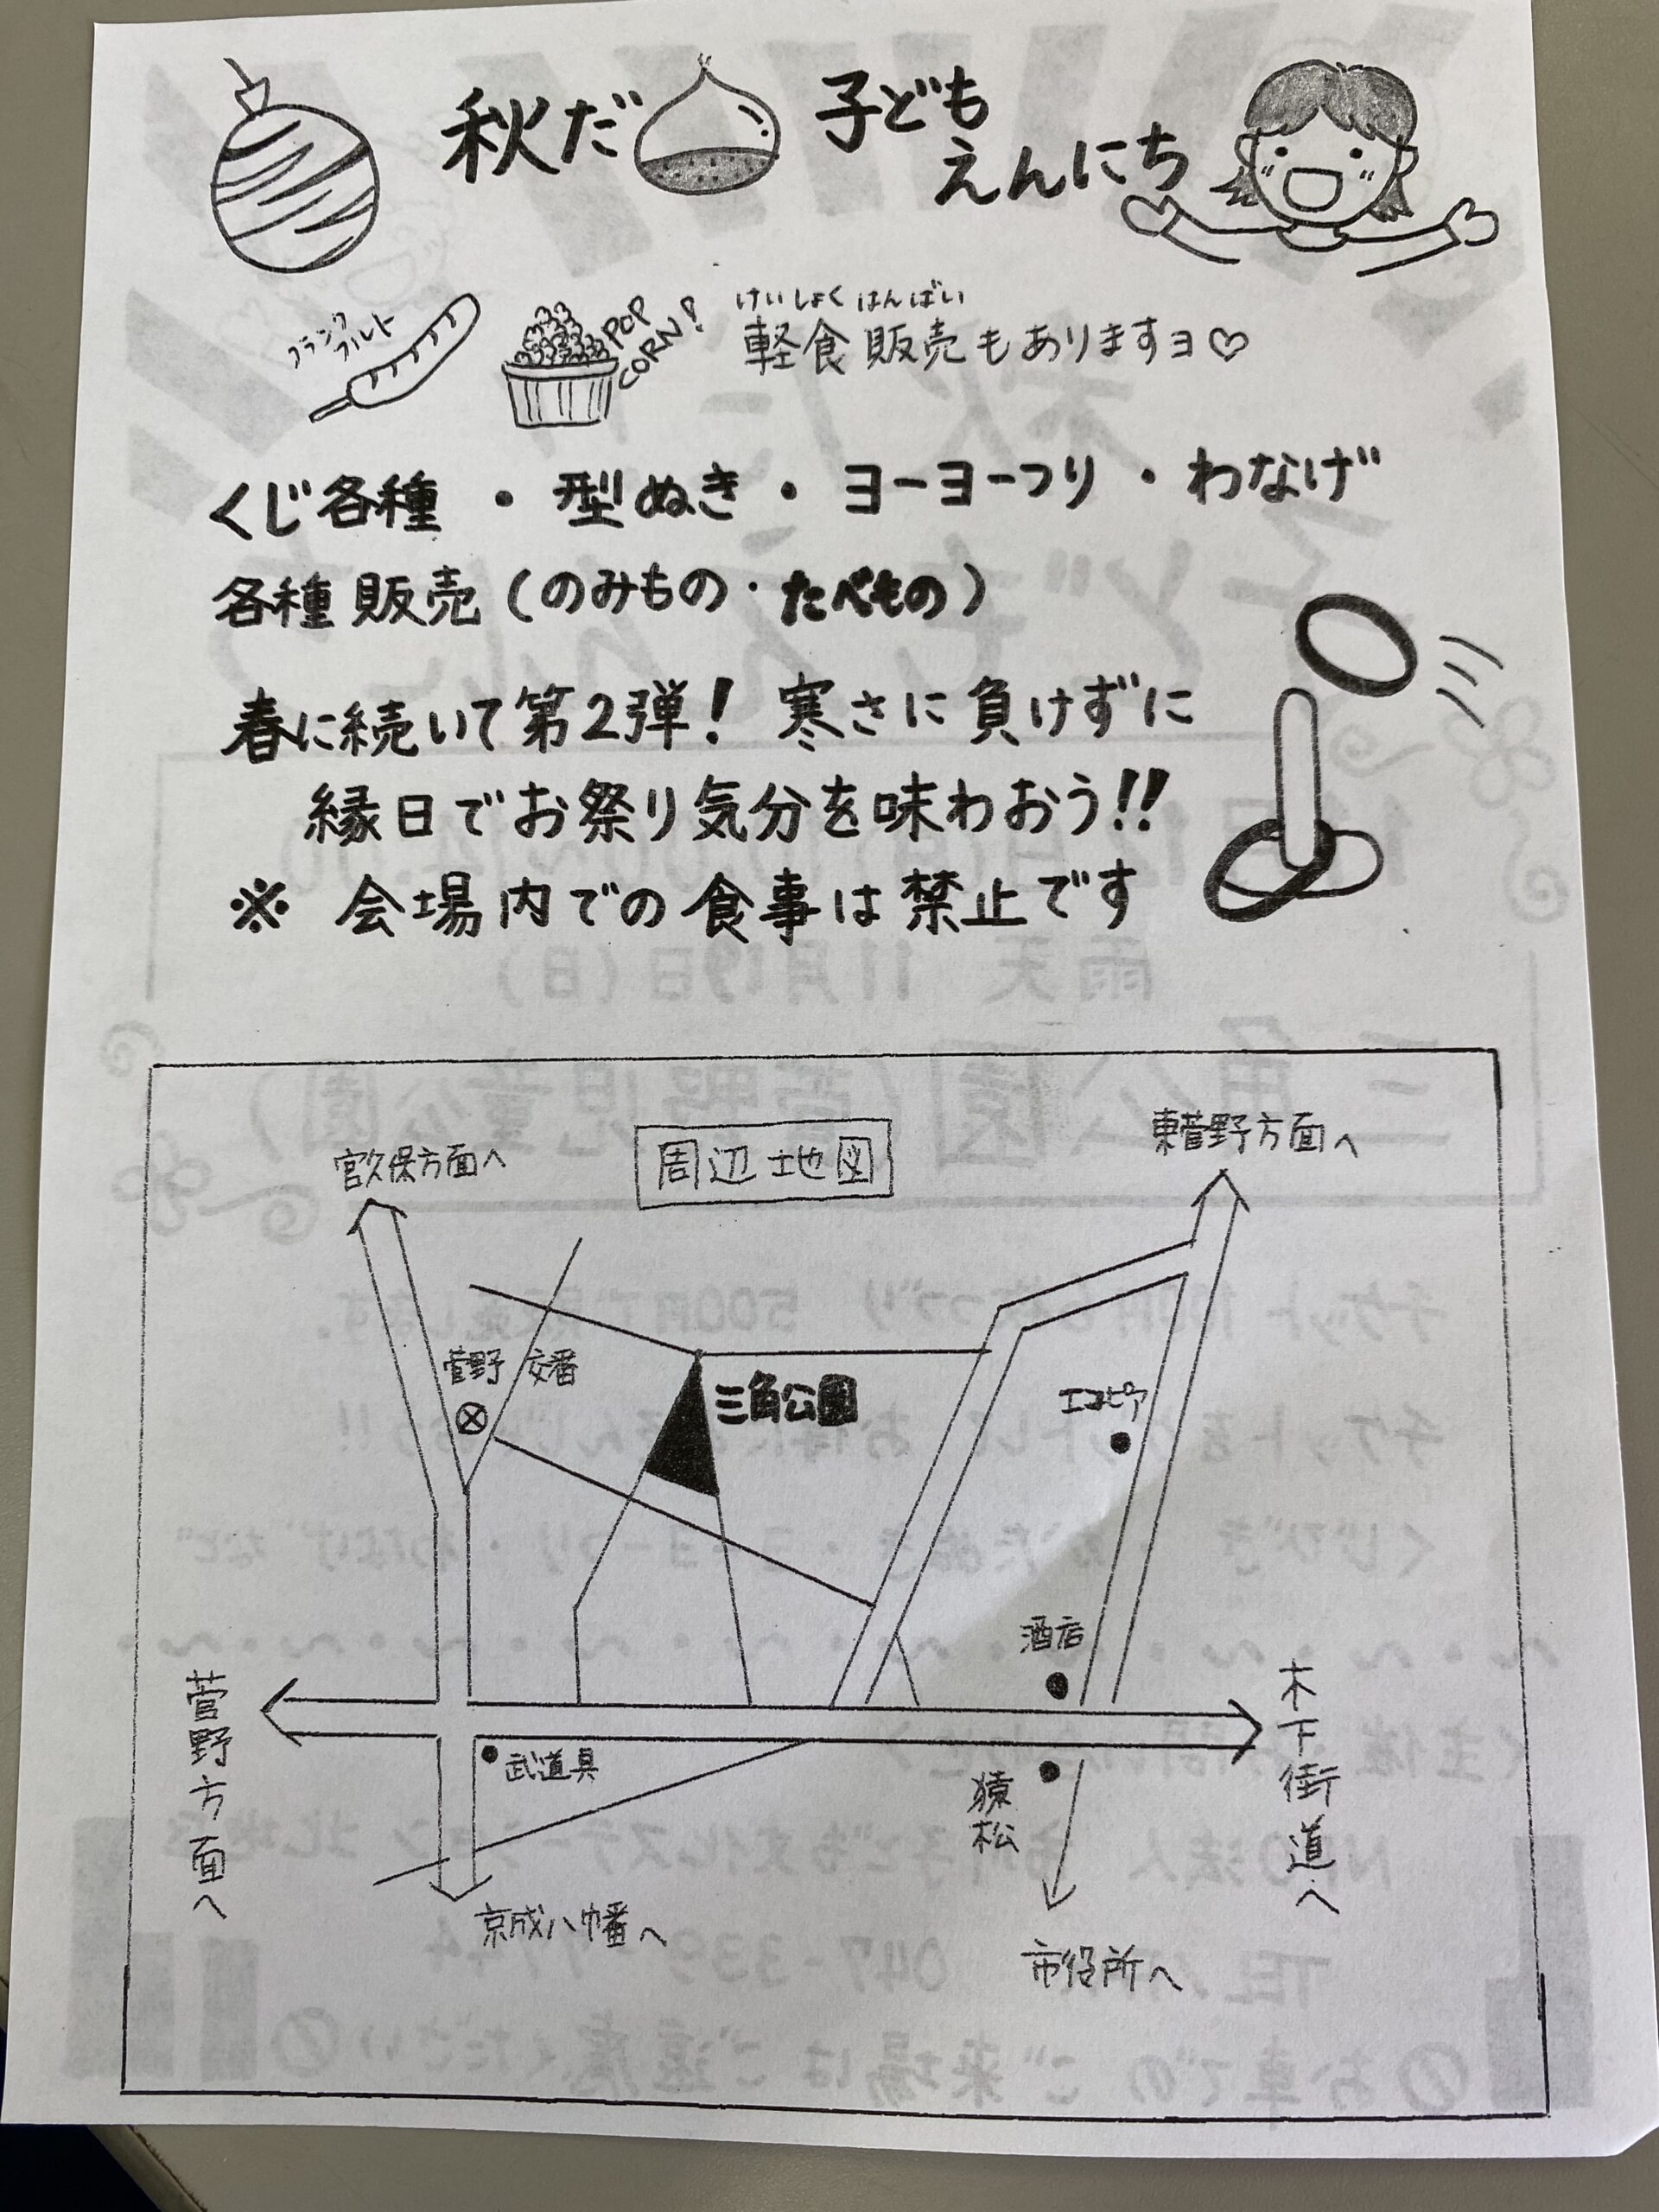 秋だ 子ども
えんにち
フランク
フルト
POP
CORN!
けいしょく はんばい
軽食販売もありますヨ♡
くじ各種・型ぬき・ヨーヨーつり・わなげ
各種販売(のみもの・たべもの)
春に続いて第2弾! 寒さに負けずに
縁日でお祭り気分を味わおう!!
※ 会場内での食事は禁止です
周辺地図
宮久保方面へ
東菅野方面へ
菅野 交番
三角公園
エコピア
酒店
菅野方面へ
木下街道へ
武道具
猿松
京成八幡へ
市役所へ
雨天 11月19日(日)
三角公園(菅野児童公園)